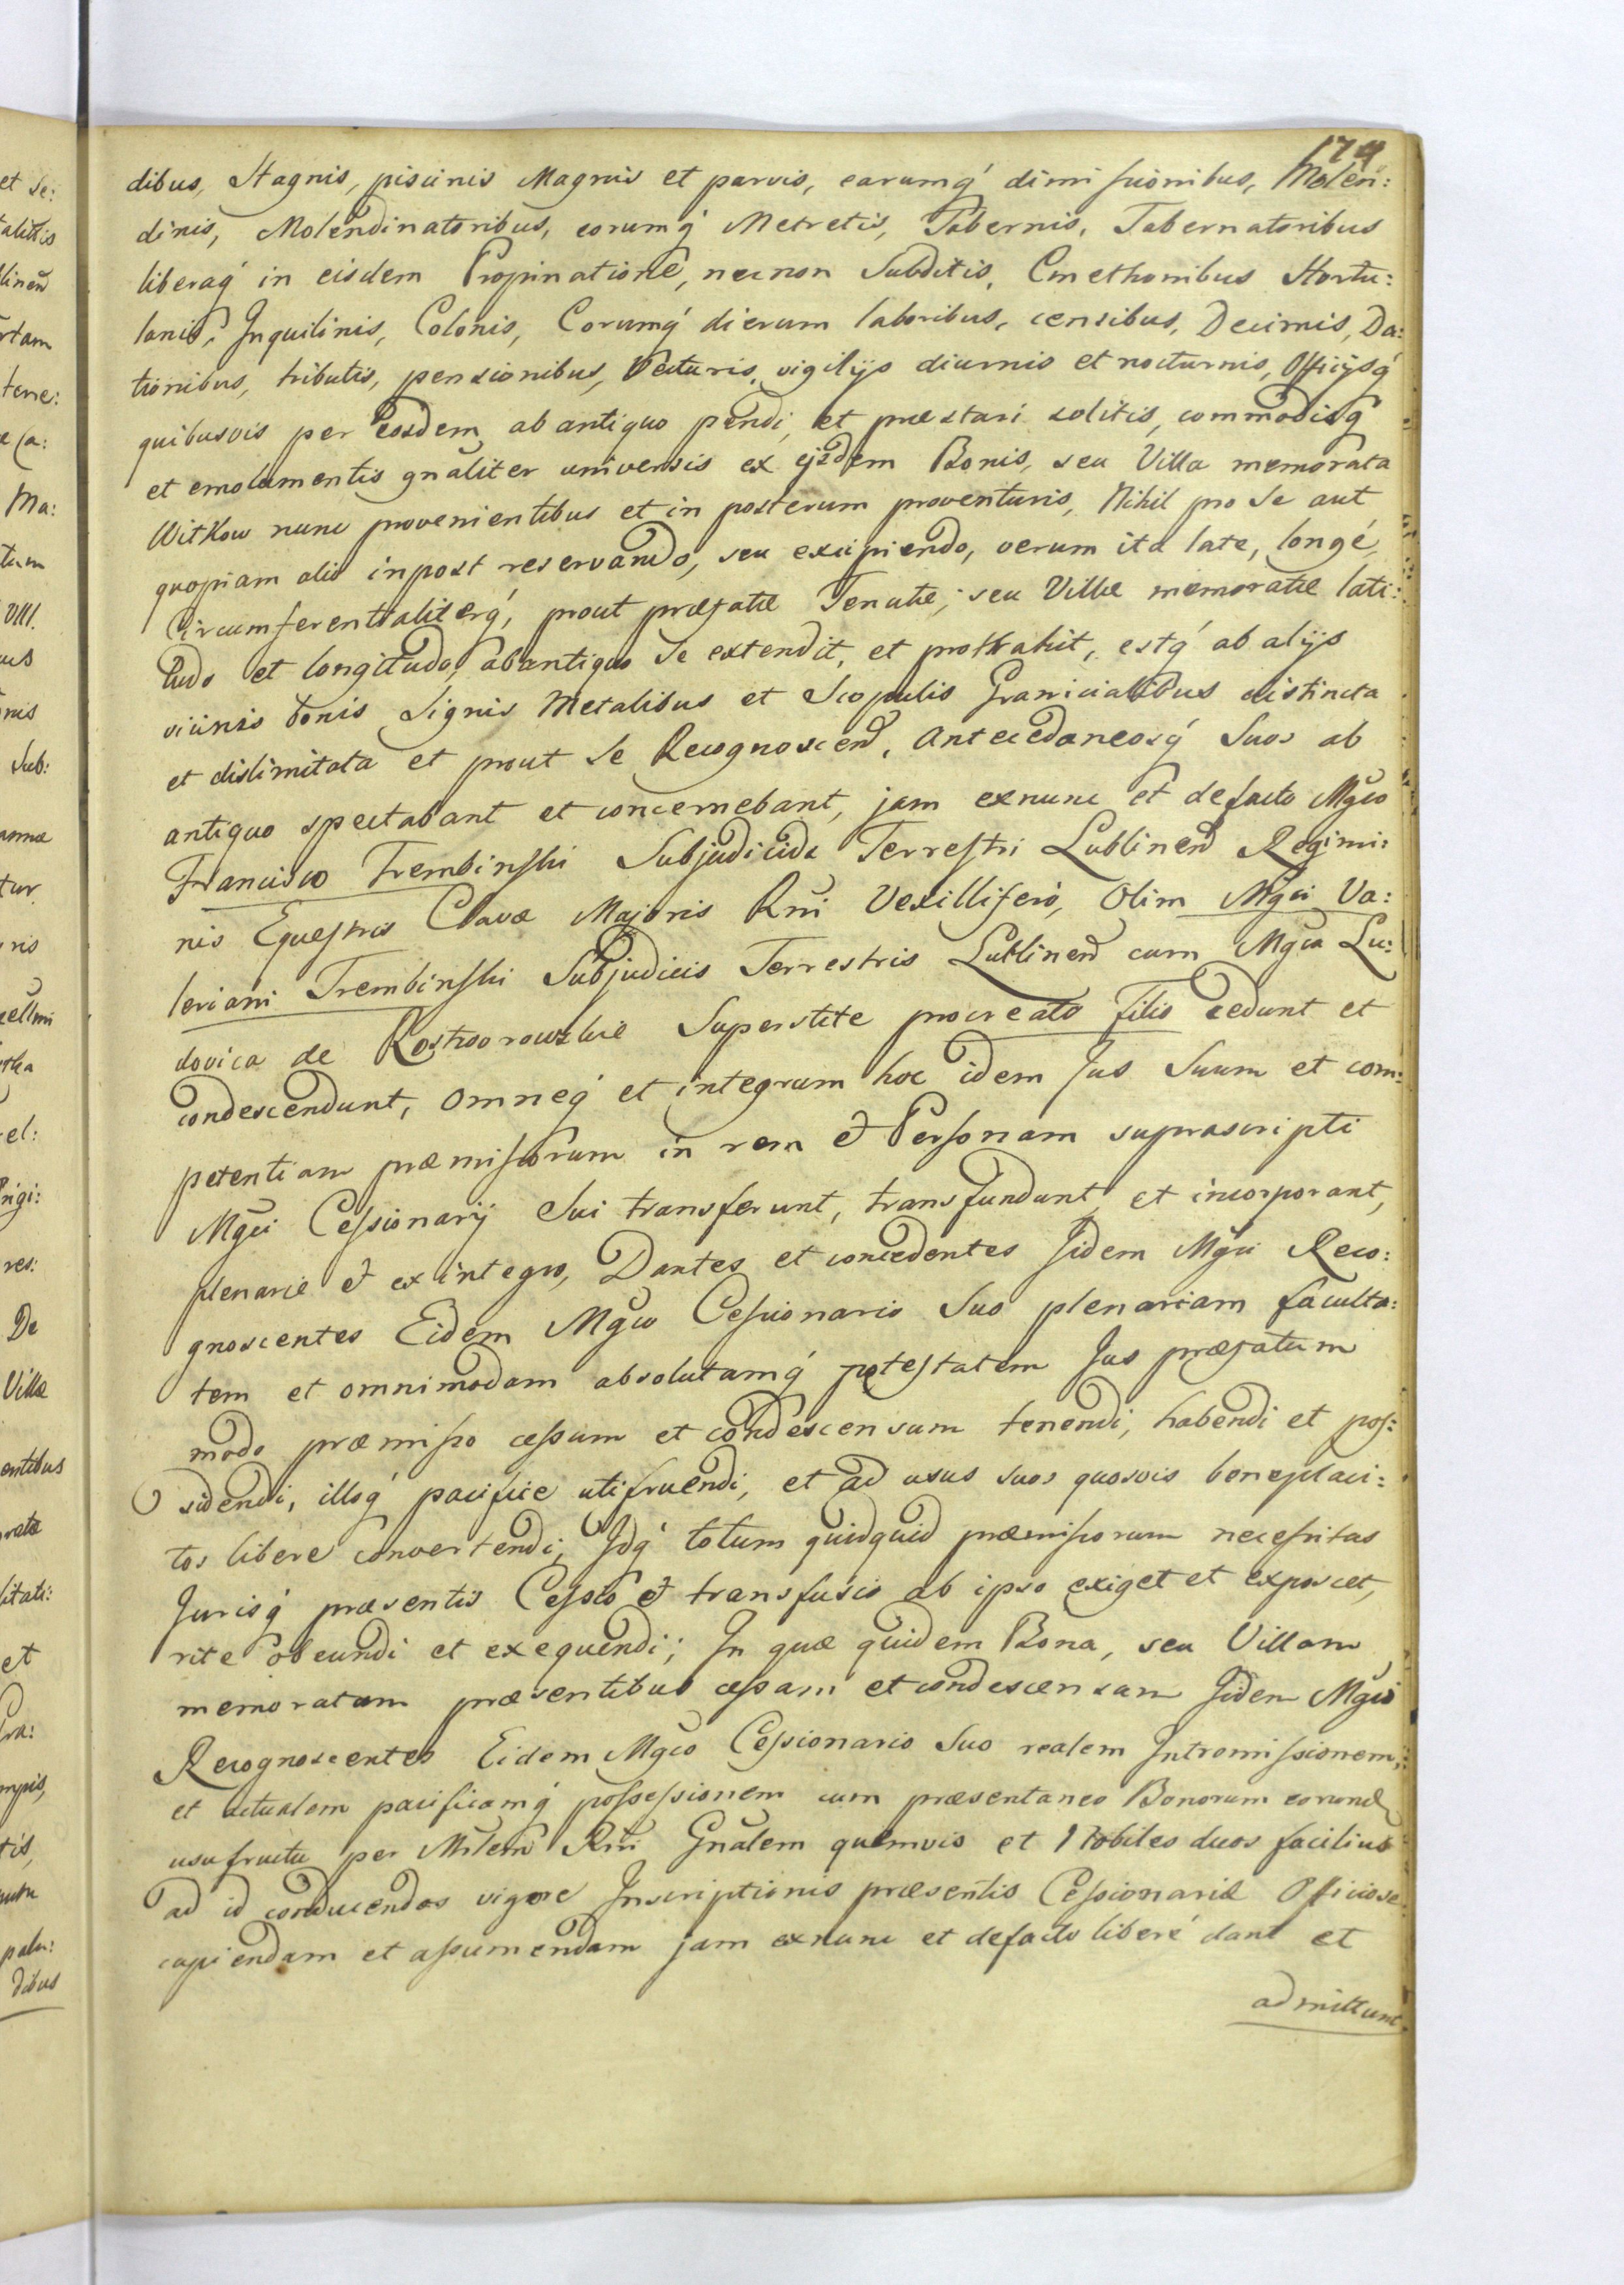 174
dibus, Stagnis, piscinis Magnis et parvis, earumq́ dimissionibus, Molen:
dinis, Molendinatoribus, eorumq́ Metretis, Tabernis, Tabernatoribus
liberaq́ in eisdem Propinatione, necnon Subditis, Cmethonibus Hortu:
lanis, Inquilinis, Colonis, Eorumq́ dierum laboribus, censibus, Decimis, Da:
tionibus, tributis, pensionibus, Vecturis, vigilijs diurnis et nocturnis, Officijsq́
quibusvis per eosdem ab antiquo pendi, et præstari solitis, commodisq́
et emolumentis gñaliter universis ex ejsdem Bonis, seu Villa memorata
Witkow nunc provenientibus et in posterum proventuris, Nihil pro se aut
quopiam alio inpost reservando, seu excipiendo, verum ita late, longé,
Circumferentialiterq́, prout præfatæ Tenutæ, seu Villæ memoratæ lati:
tudo et longitudo, abantiquo se extendit, et prottrahit, estq́ ab alijs
vicinis bonis signis Metalibus et Scopulis Granicialibus distincta
et dislimitata et prout se Recognoscend, Antecedaneosq́ Suos ab
antiquo spectabant et concernebant, jam exnunc et defacto Mg̃co
Francisco Trembinski Subjudicida Terrestri Lublinen Regimi:
nis Equestris Clavæ Majoris Rñi Vexillifero, Olim Mg̃ci Va:
leriani Trembinski Subjudicis Terrestris Lublinen cum Mg̃ca Lu:
dovica de Rostworowskie Superstite procreato Filio cedunt et
condescendunt, omneq́ et integrum hoc idem Jus Suum et com:
petentiam præmissorum in rem et Personam suprascripti
Mg̃ci Cessionarij Sui transferunt, transfundunt, et incorporant,
plenarie et exintegro, Dantes et concedentes Jidem Mg̃ci Reco:
gnoscentes Eidem Mg̃co Cessionario Suo plenariam faculta:
tem et omnimodam absolutamq́ potestatem Jus præfatum
modo præmisso cessum et condescensum tenendi, habendi et pos:
sidendi, illoq́ pacifice utifruendi, et ad usus suos quosvis beneplaci:
tos libere convertendi, Jdq́ totum quidquid præmissorum necessitas
Jurisq́ præsentis Cessio et transfusio ab ipso exiget et exposcet,
rite obeundi et exequendi; In quæ quidem Bona, seu Villam
memoratam præsentibus cessam et condescensam Jidem Mg̃ci
Recognoscentes Eidem Mg̃co Cessionario Suo realem Intromissionem,
et actualem pacificamq́ possessionem cum præsentaneo Bonorum eorund
usufructu per Mñlem Rñi Gñalem quemvis et Nobiles duos facilius
ad id conducendos vigore Inscriptionis præsentis Cessionariæ Officiose
capiendam et assumendam jam exnunc et defacto liberé dant et
admittunt